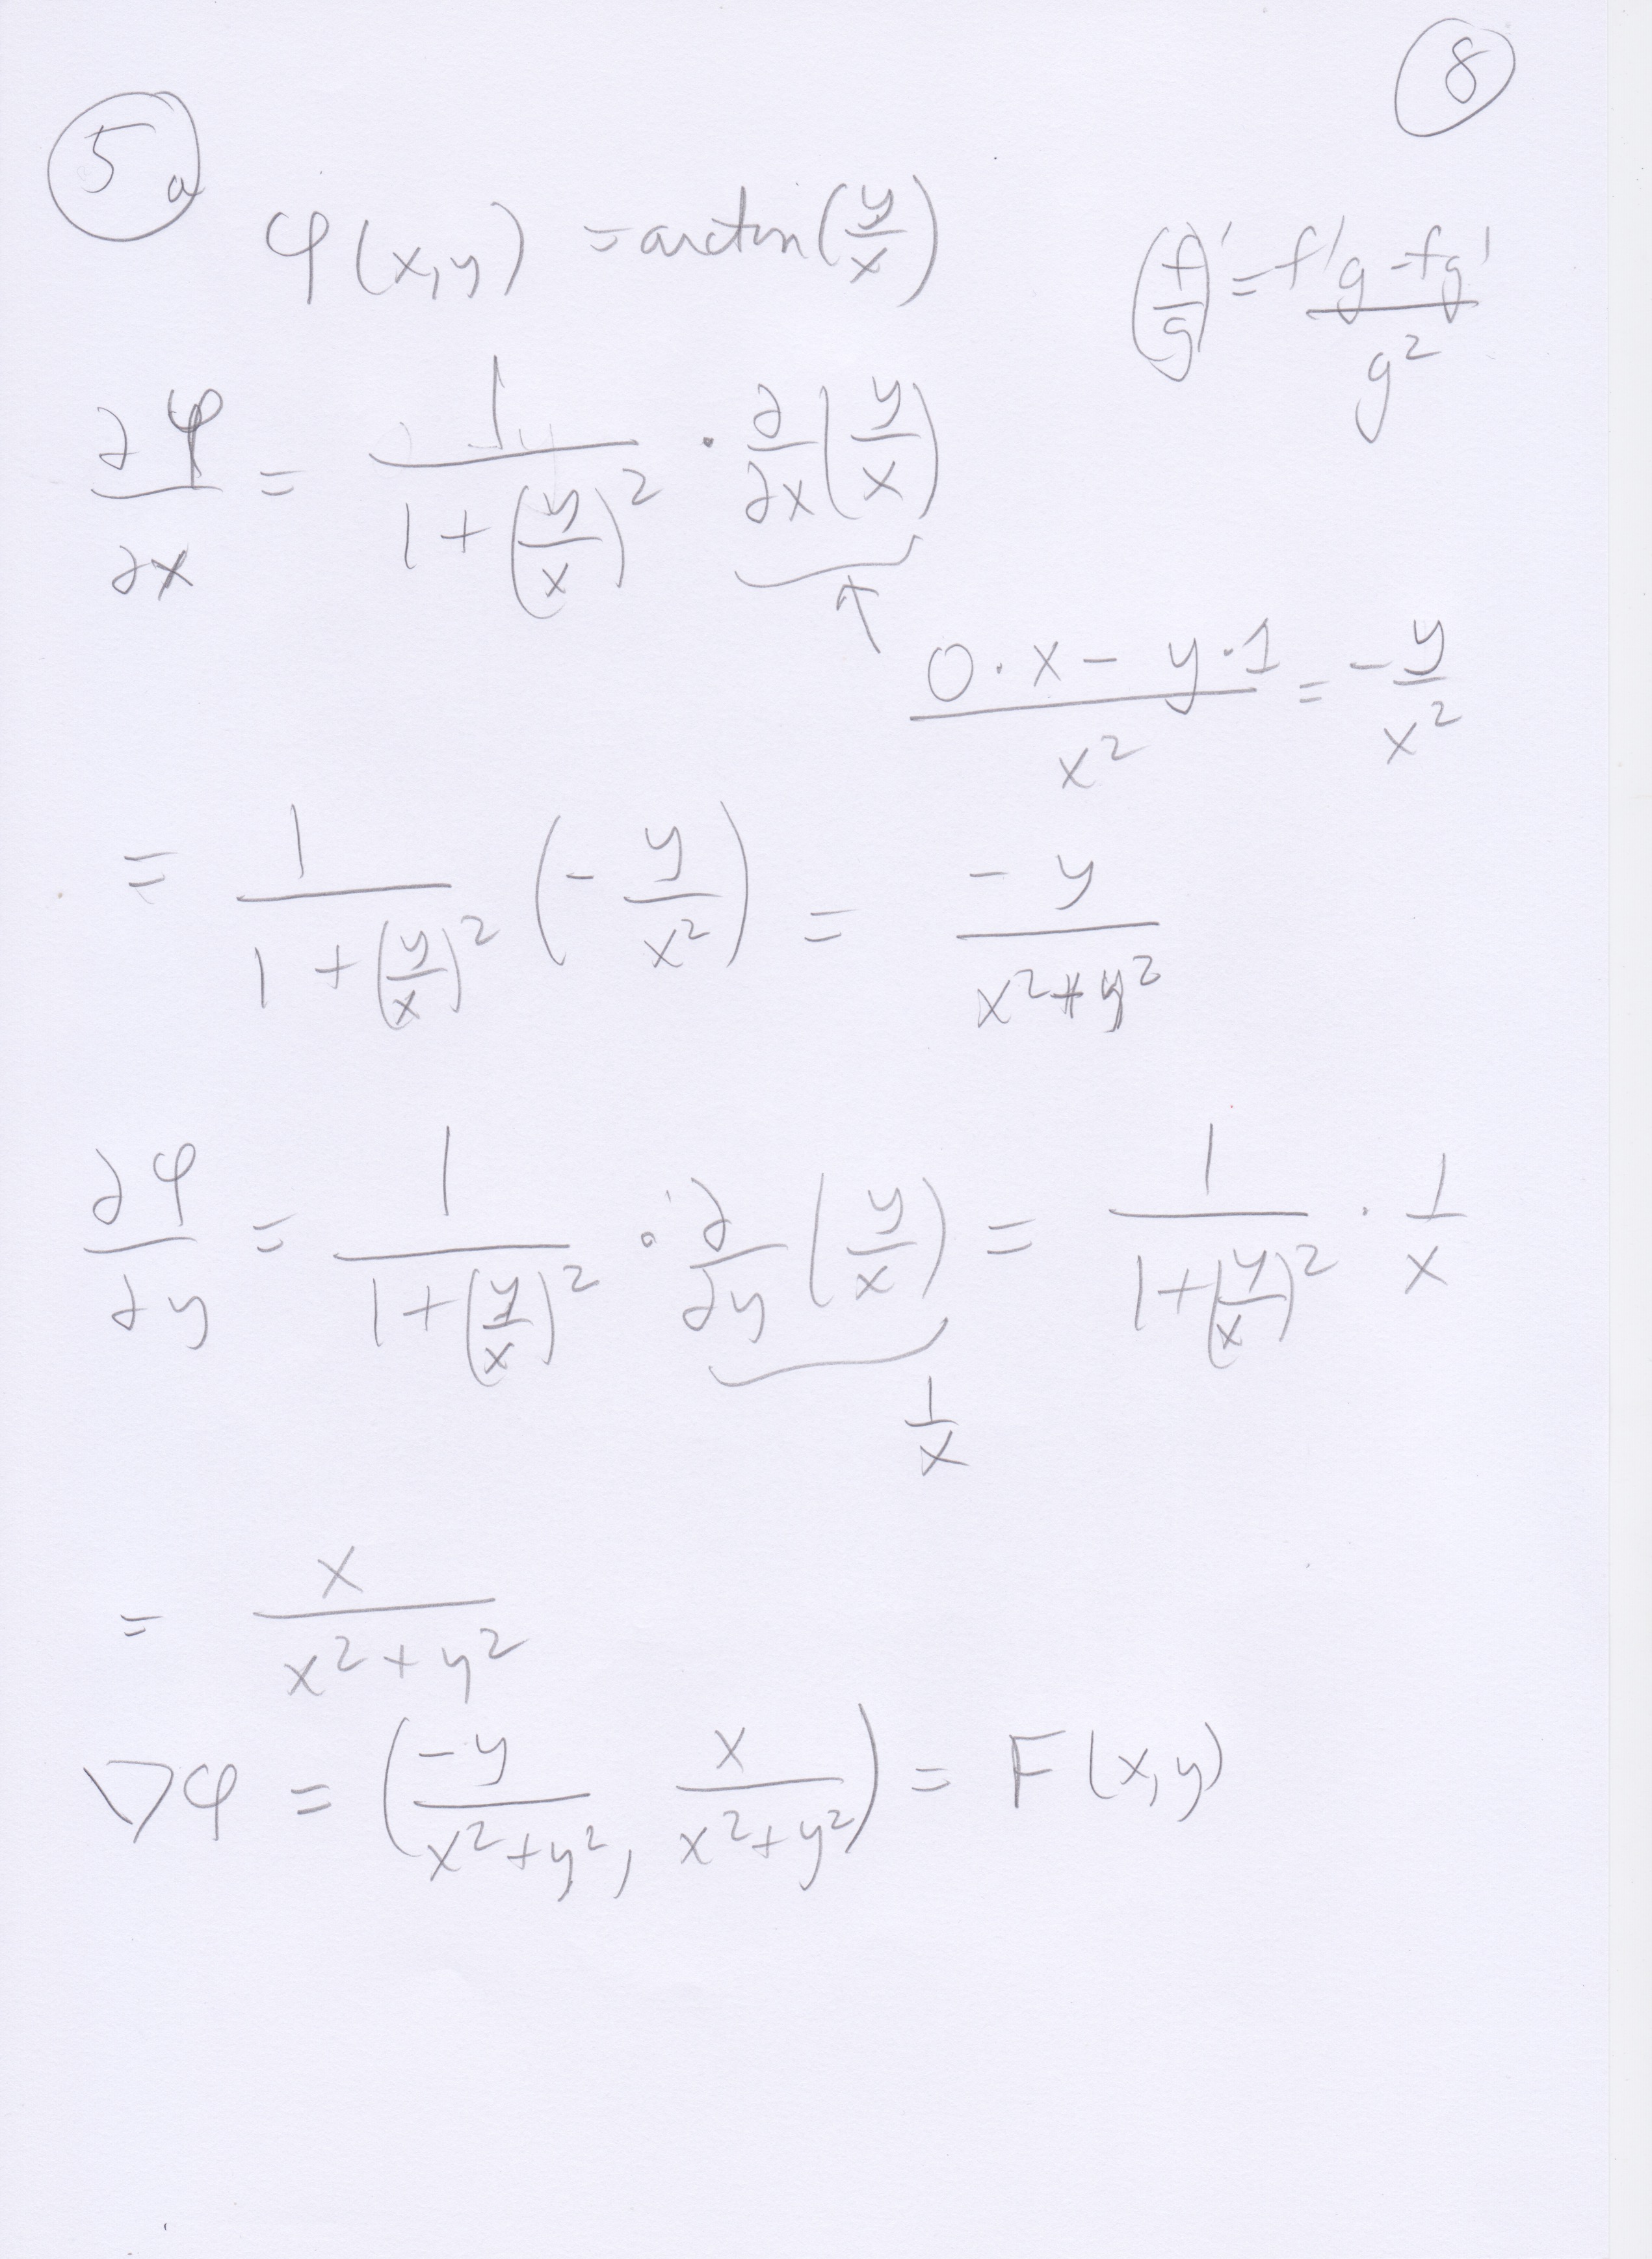 8
5a
φ(x,y) = arctan(y/x)
(f/g)' = (f'g - fg')/g²
∂φ/∂x = 1/(1+(y/x)²) · ∂/∂x(y/x)
↑
(0·x - y·1)/x² = -y/x²
= 1/(1+(y/x)²) (-y/x²) = -y/(x²+y²)
∂φ/∂y = 1/(1+(y/x)²) · ∂/∂y(y/x) = 1/(1+(y/x)²) · 1/x
1/x
= x/(x²+y²)
∇φ = (-y/(x²+y²), x/(x²+y²)) = F(x,y)